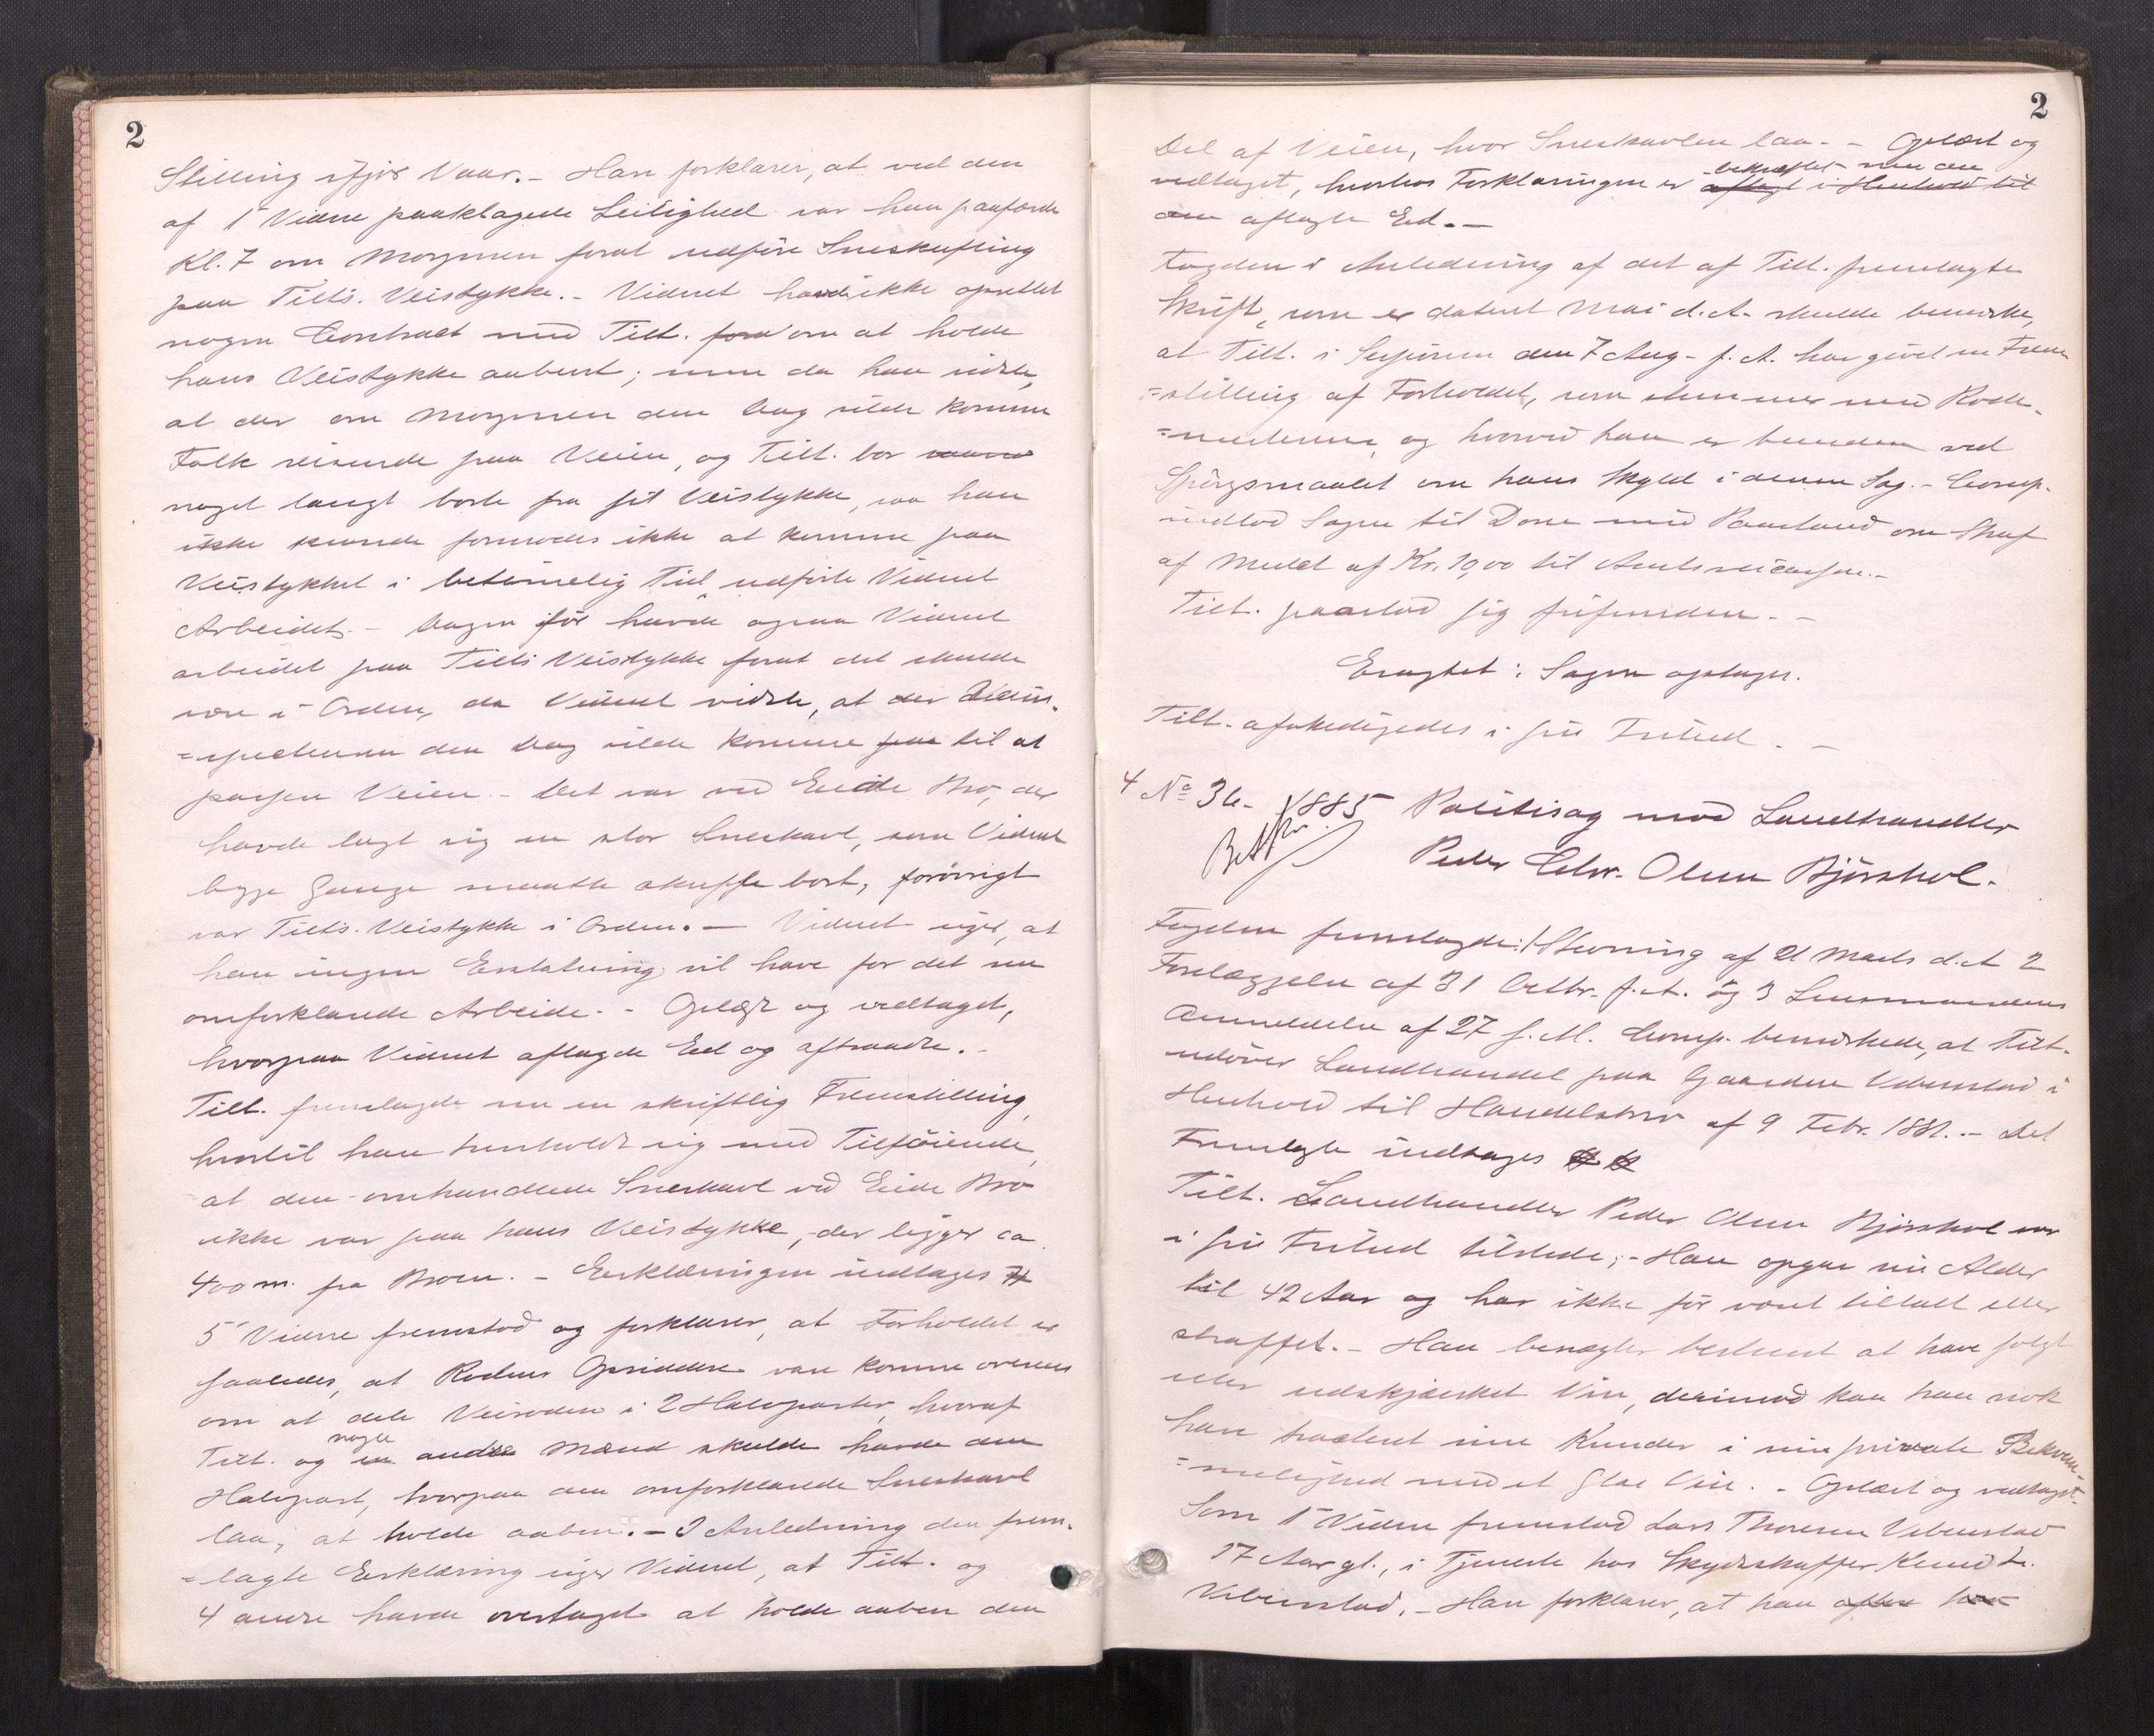 2
Stilling ifjor Vaar. - Han forklarer, at ved den
af 1 Vidne paaklagede Leilighed var han paafærde
Kl. 7 om Morgenen forat udføre Sneskufling
paa Tilts. Veistykke. - Vidnet havde ikke oprettet
nogen Contract med Tilt. for om at holde
hans Veistykke aabent; men da han vidste,
at der om Morgenen den Dag vilde komme
Folk reisende paa Veien, og Tilt. bor
noget langt borte fra sit Veistykke, saa han
ikke kunde formodes ikke at komme paa
Veistykket i betimelig Tid, udførte Vidnet
Arbeidet. - Dagen før havde ogsaa Vidnet
arbeidet paa Tilts Veistykke forat det skulde
være i Orden, da Vidnet vidste, at der Veiin-
=specteuren den Dag vilde komme paa til at
passere Veien. - Det var ved Eide Bro, der
havde lagt sig en stor Sneskavl, som Vidnet
begge Gange maatte skuffe bort, forøvrigt
var Tilts. Veistykke i Orden. - Vidnet siger, at
han ingen Erstatning vil have for det nu
omforklarede Arbeide. - Oplæst og vedtaget,
hvorpaa Vidnet aflagde Eed og aftraadte. -
Tilt. fremlagde nu en skriftlig Fremstilling,
hvortil han henholdt sig med Tilføiende,
at den omhandlede Sneskavl ved Eide Bro
ikke var paa hans Veistykke, der ligger ca
400 m. fra Broen. - Erklæringen indtages #
5' Vidne fremstod og forklarer, at Forholdet er
saaledes, at Rodens Opsiddere vare komne overens
om at dele Veiroden i 2 Halvparter, hvoraf
nogle
Tilt. og en andre Mænd skulde havde den
Halvpart, hvorpaa den omforklarede Sneskavl
laa, at holde aaben. - I Anledning den frem-
=lagte Erklæring siger Vidnet, at Tilt. og
4 andre havde overtaget at holde aaben den
2
Del af Veien, hvor Sneskavlen laa. - Oplæst og
bekræftet med den
vedtaget, hvorhos Forklaringen er aflagt i Henhold til
den aflagte Eed. -
Fogden i Anledning af det af Tilt. fremlagte
Skrift, som er dateret Mai d. A. skulde bemærke,
at Tilt. i Sessionen den 7 Aug. f. A. har givet en Frem
=stilling af Forholdet, som stemmer med Rode-
=mesterens, og hvorved han er bunden ved
Spørgsmaalet om hans Skyld i denne Sag. - Comp.
indlod Sagen til Dom med Paastand om Straf
af Mulct af Kr. 10,00 til Amtsveicassen. -
Tilt. paastod sig frifunden. -
Eragtet: Sagen optages.
Tilt. afskedigedes i fri Tilstand. -
4 No 36 - 1885 Politisag mod Landhandler
Peder Edv. Olsen Bjørshol.
Fogden fremlagde: 1 Stevning af 21 Marts d. A 2
Forelæggelse af 31 Octbr. f. A. og 3 Lensmandens
Anmeldelse af 27 s. M. Comp. bemærkede, at Tilt.
udøver Landhandel paa Gaarden Vebenstad i
Henhold til Handelsbrev af 9 Febr. 1881. - Det
Fremlagte indtages # #
Tilt. Landhandler Peder Olsen Bjørshol var
i fri Tilstand tilstede; - Han opgav sin Alder
til 42 Aar og har ikke før været tiltalt eller
straffet. - Han benægter bestemt at have solgt
eller udskjænket Vin, derimod kan han nok
have trakteret sine Kunder i sin private Bekvem-
=melighed med et Glas Vin. - Oplæst og vedtaget.
Som 1' Vidne fremstod Lars Thoresen Vebenstad
17 Aar gl., i Tjeneste hos Skydsskaffer Knud L.
Vebenstad. - Han forklarer, at han